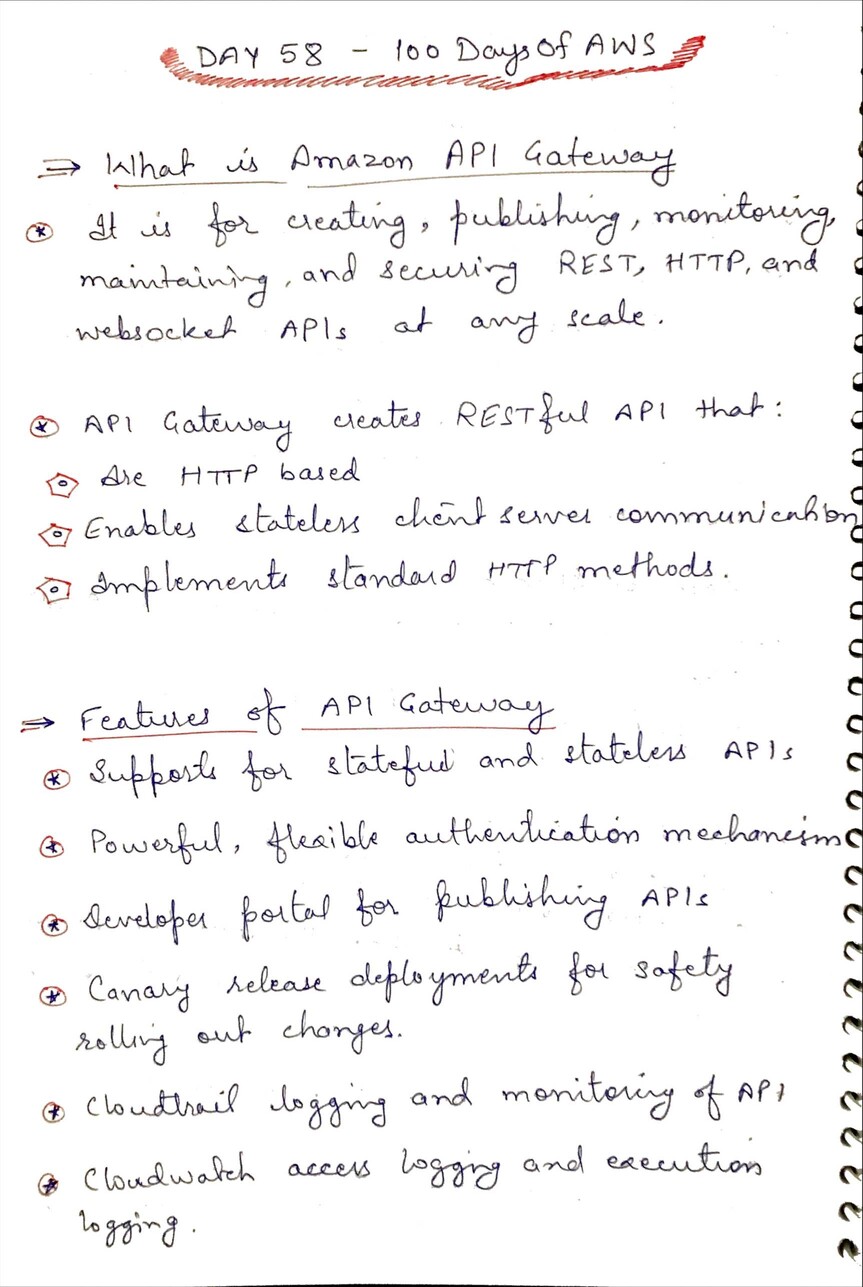 DAY 58 - 100 Days Of AWS
⇒ What is Amazon API Gateway
* It is for creating, publishing, monitoring,
maintaining, and securing REST, HTTP, and
websocket APIs at any scale.
* API Gateway creates RESTful API that:
Are HTTP based
Enables stateless client server communication
Implements standard HTTP methods.
⇒ Features of API Gateway
* Supports for stateful and stateless APIs
* Powerful, flexible authentication mechanism
* Developer portal for publishing APIs
* Canary release deployments for safety
rolling out changes.
* Cloudtrail logging and monitoring of API
* Cloudwatch access loggng and execution
logging.